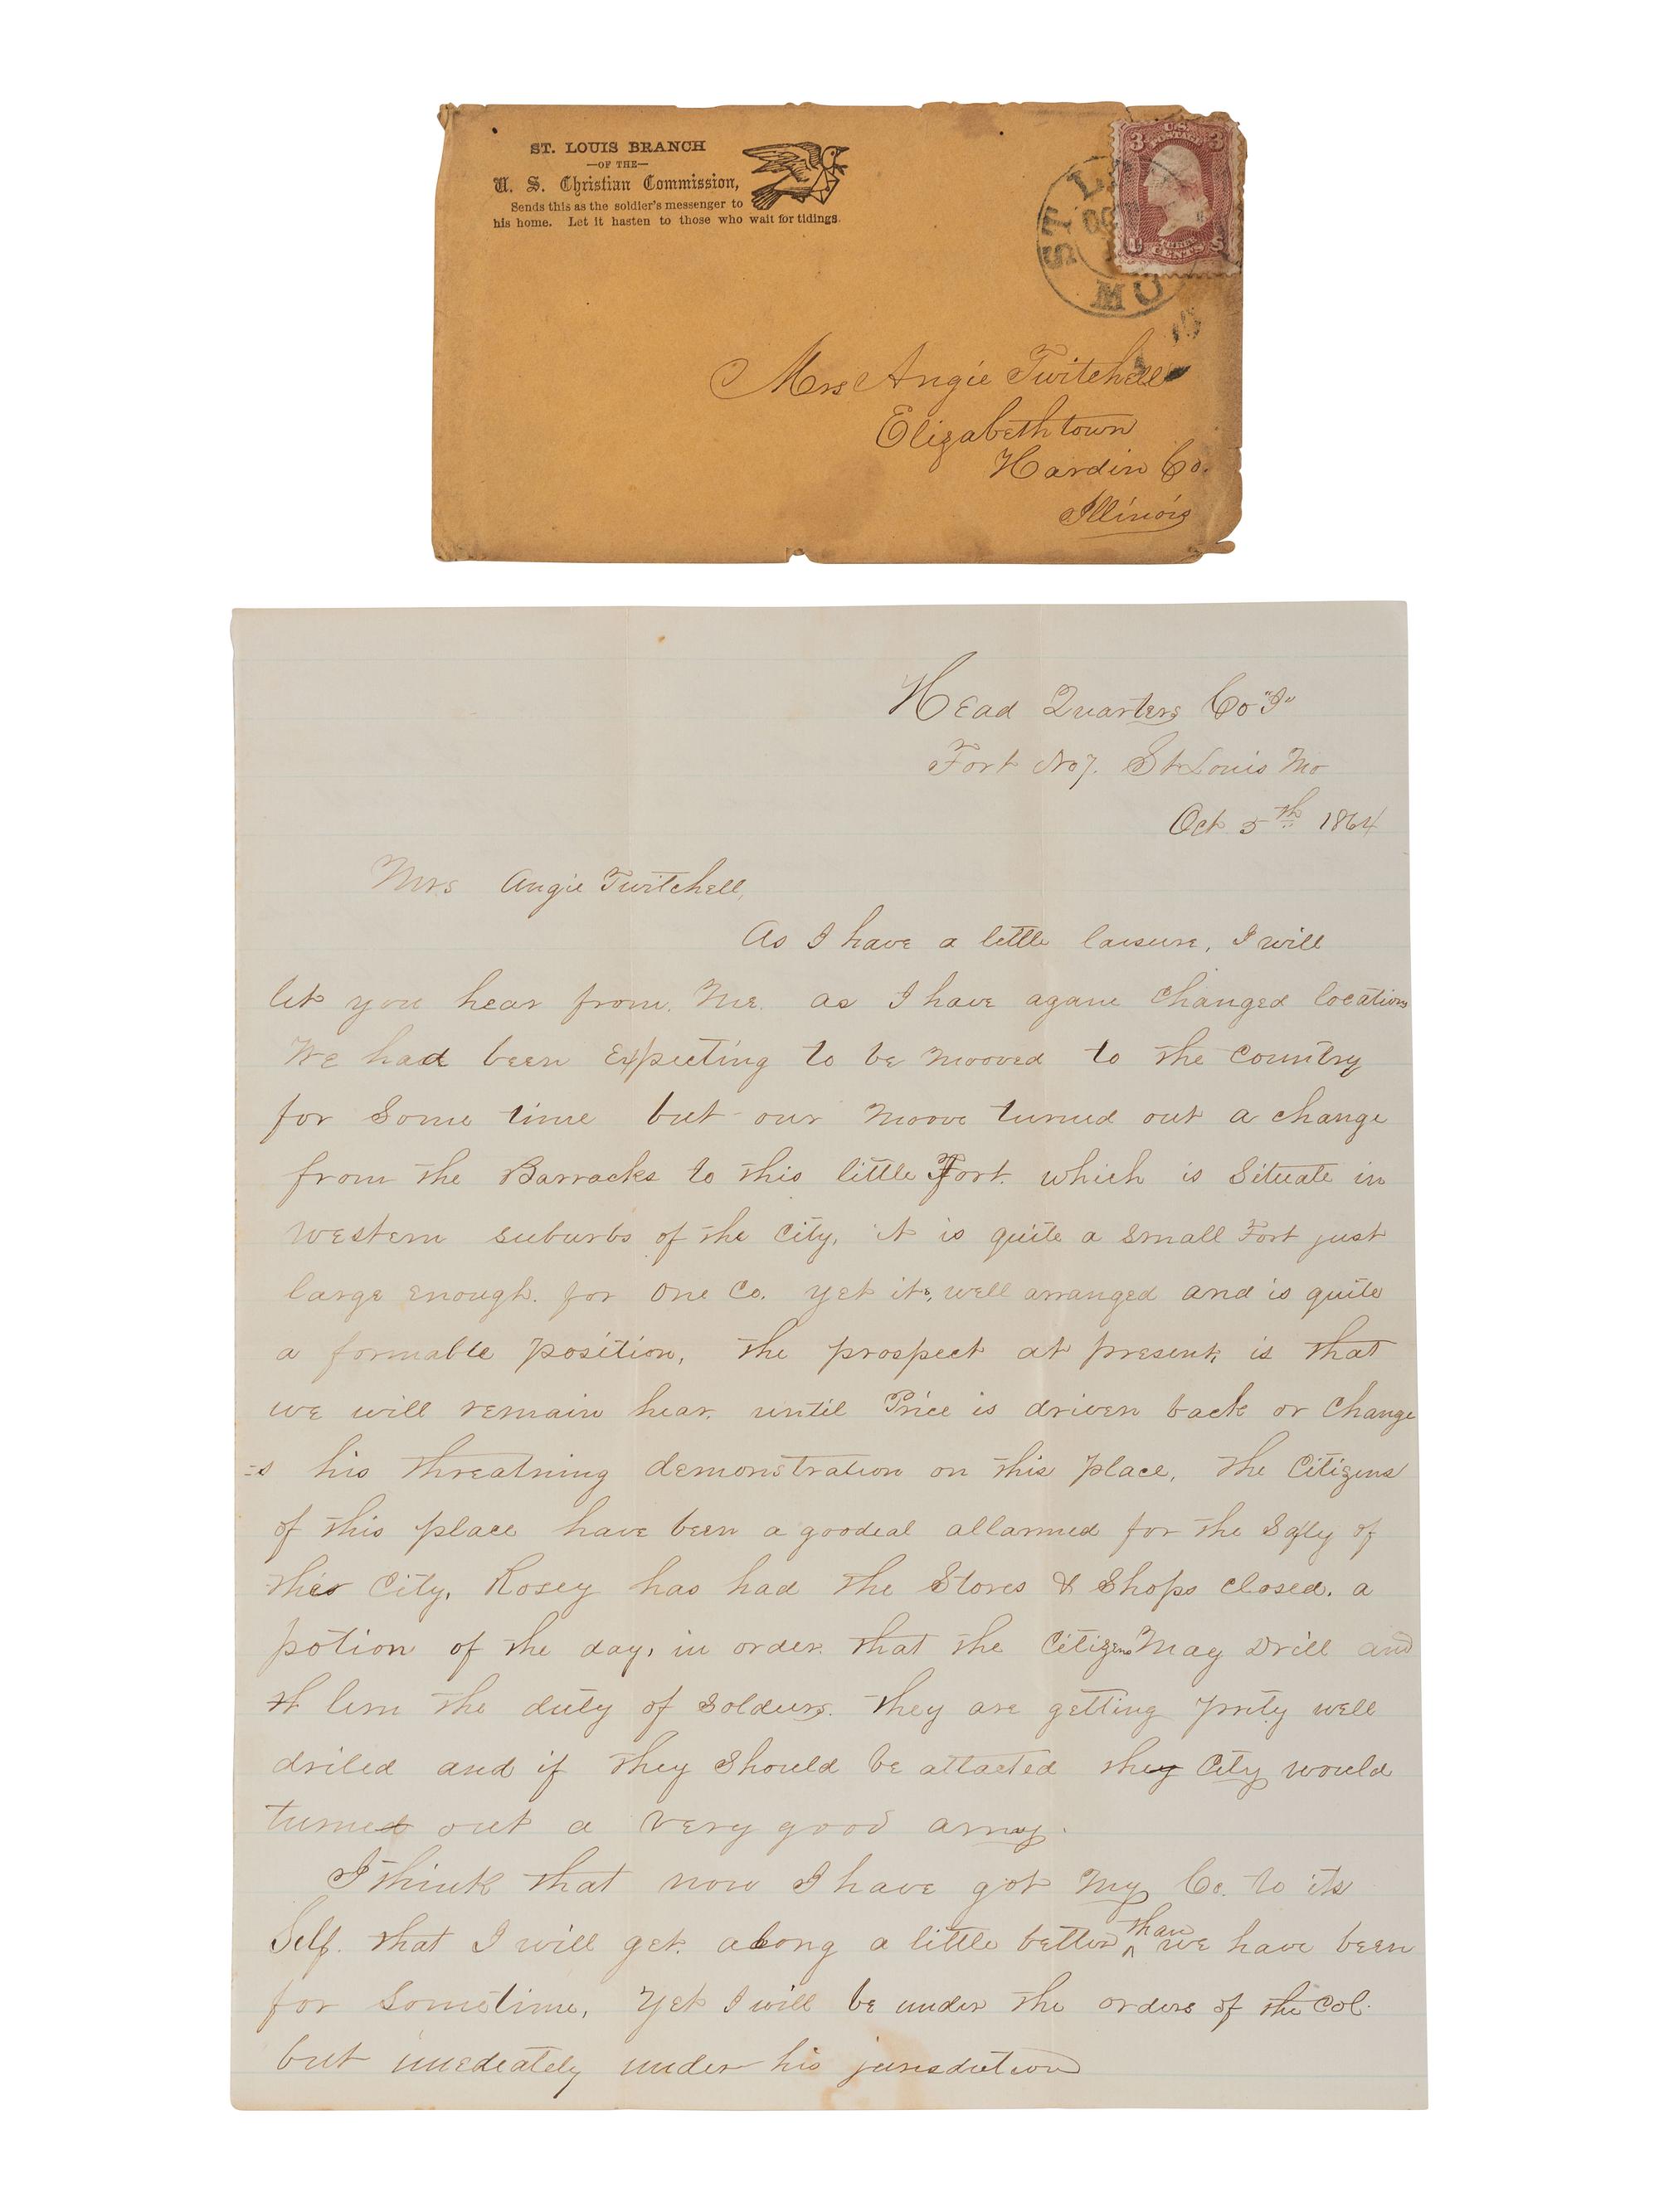 ST. LOUIS BRANCH
—OF THE—
U. S. Christian Commission,
Sends this as the soldier's messenger to
his home. Let it hasten to those who wait for tidings.
U.S. POSTAGE
3 3
THREE
CENTS
ST L
OC
MO
Mrs Angie Twitchell
Elizabethtown
Hardin Co.
Illinois
Head Quarters Co "I"
Fort No 7. St Louis Mo
Oct 5th 1864
Mrs Angie Twitchell,
As I have a little laisure, I will
let you hear from. Me. as I have agane changed location
We had been Expecting to be mooved to the country
for some time but our moove turned out a change
from the Barracks to this little Fort. which is Situate in
western suburbs of the City, it is quite a small Fort just
large enough. for one Co. yet its, well arranged and is quite
a formable position, the prospect at present, is that
we will remain hear. until Price is driven back or change
=s his threatning demonstration on this place, the Citizens
of this place have been a goodeal allarmed for the Safty of
this City, Rosey has had the Stores & Shops closed. a
potion of the day, in order. that the Citizens May Drill and
lern the duty of soldiers. they are getting prity well
driled and if they should be attacted they City would
turned out a very good army.
I think that now I have got my Co. to its
Self. that I will get. along a little better than we have been
for sometime, yet I will be under the orders of the Col.
but imediately under his jurisdiction